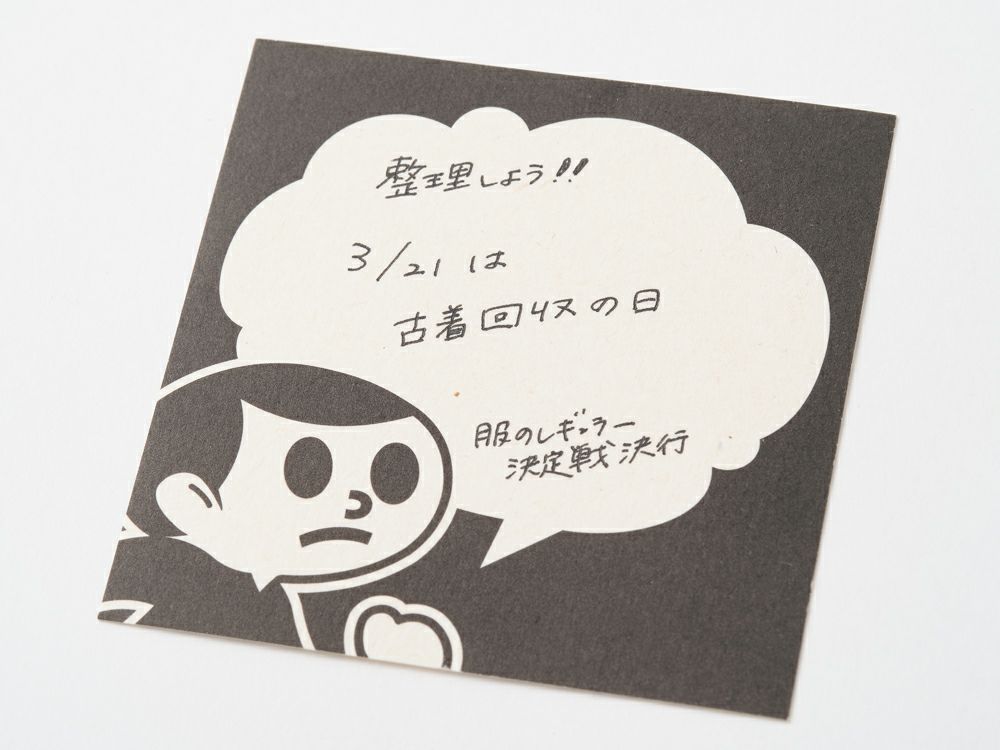 整理しよう!!
3/21は
古着回収の日
服のレギュラー
決定戦決行